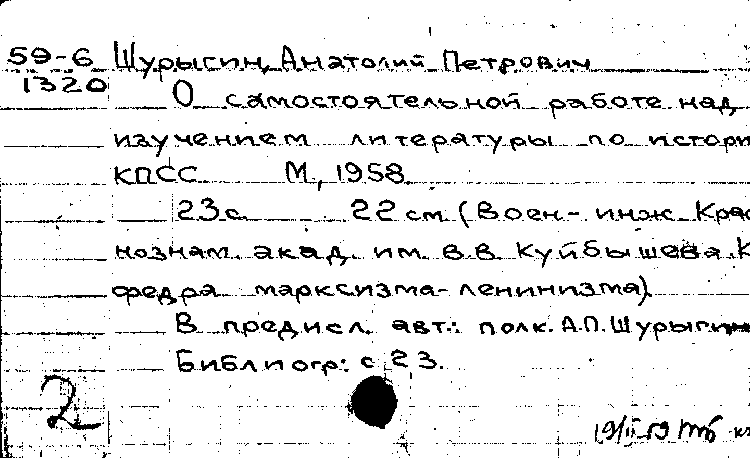 59-6 Шурыгин, Анатолий Петрович
1320 О самостоятельной работе над
изучением литературы по истори
КПСС М., 1958.
23 с. 22 см. (Воен-инж. Крас
нознам. акад. им. В.В. Куйбышева. К
федра марксизма-ленинизма).
В предисл. авт.: полк. А.П. Шурыгин
Библиогр: с 23.
2